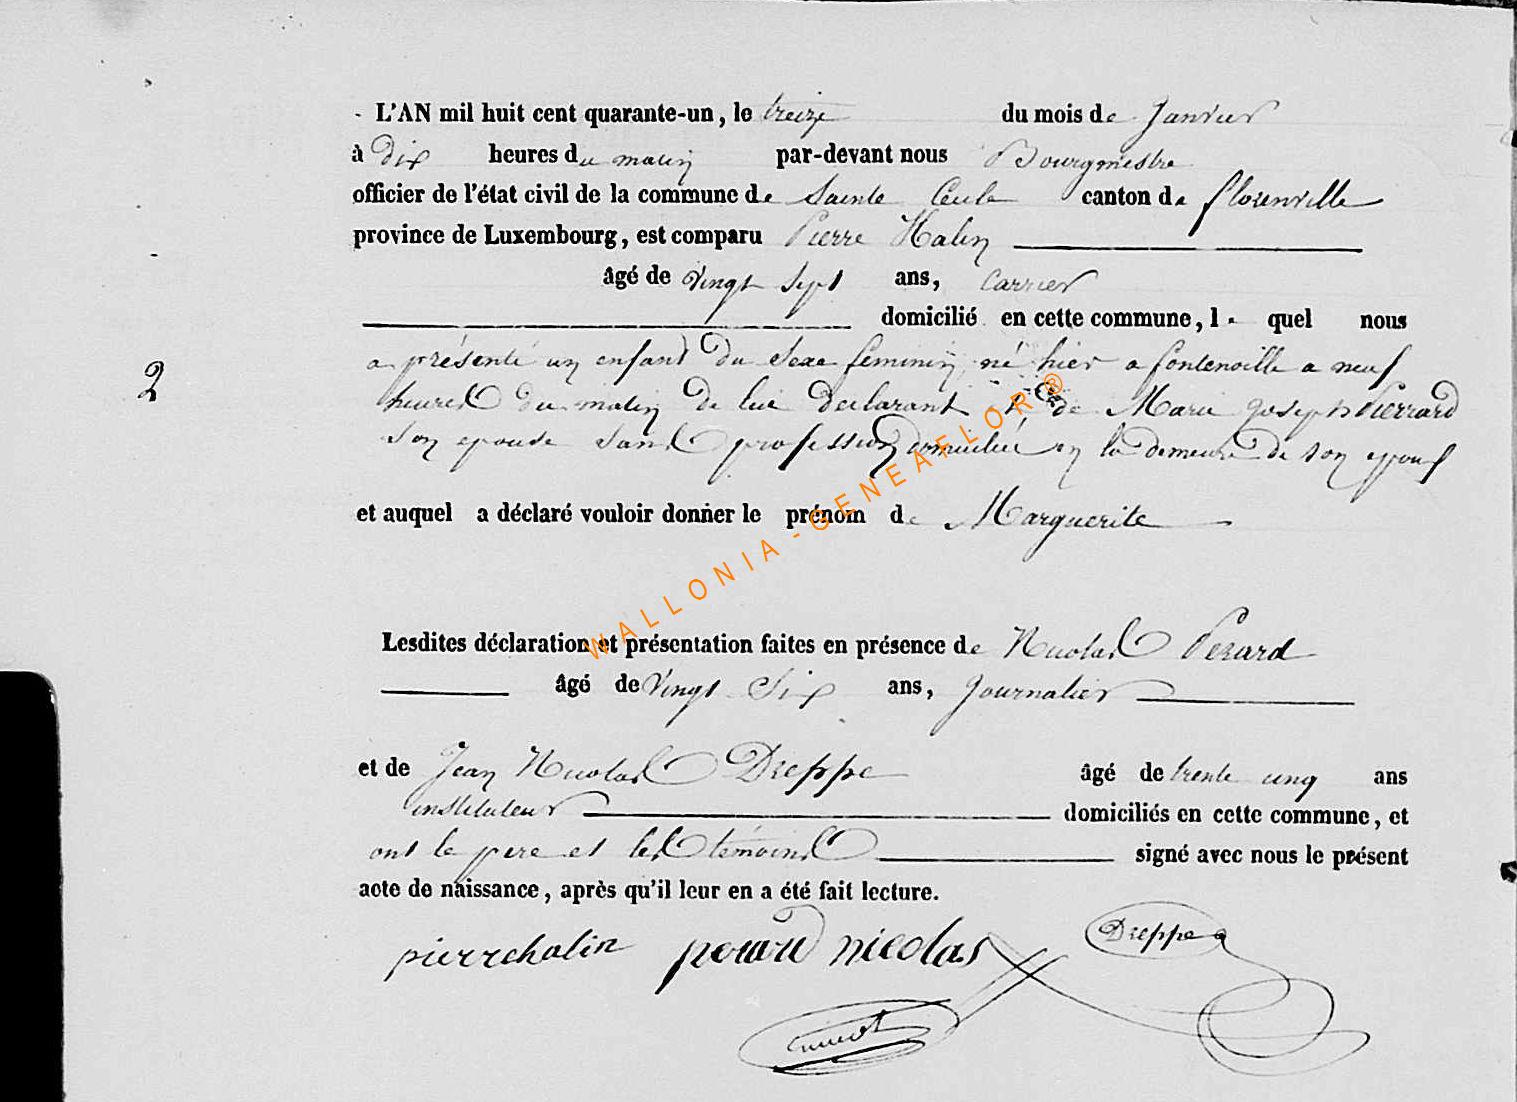 L'AN mil huit cent quarante-un, le treize du mois de Janvier
à Dix heures du matin par-devant nous Bourgmestre
officier de l'état civil de la commune de Sainte Cecile canton de florenville
province de Luxembourg, est comparu Pierre Halin
âgé de vingt sept ans, Carrier
domicilié en cette commune, le quel nous
2
a présenté un enfant du Sexe feminin, né hier a fontenoille a neuf
heures du matin de lui declarant & de Marie Joseph Pierrard
son epouse sans profession domiciliée en la demeure de son epoux
et auquel a déclaré vouloir donner le prénom de Marguerite
Lesdites déclaration et présentation faites en présence de Nicolas Perard
âgé de Vingt Six ans, Journalier
et de Jean Nicolas Dreppe âgé de trente cinq ans
instituteur domiciliés en cette commune, et
ont le pere et les témoins signé avec nous le présent
acte de naissance, après qu'il leur en a été fait lecture.
pierre halin perard nicolas Dreppe
WALLONIA - GENEAFLOR®